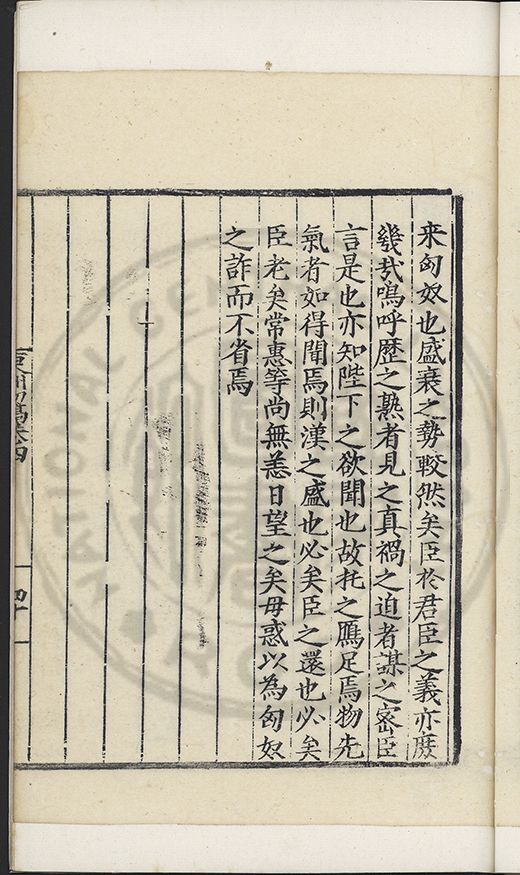 来匈奴也盛衰之勢較然矣臣於君臣之義亦庶
幾㢤嗚呼歷之熟者見之真禍之迫者謀之密臣
言是也亦知陛下之欲聞也故托之鴈足焉物先
氣者如得聞焉則漢之盛也必矣臣之還也必矣
臣老矣常惠等尚無恙日望之矣毋惑以為匈奴
之詐而不省焉
四十一